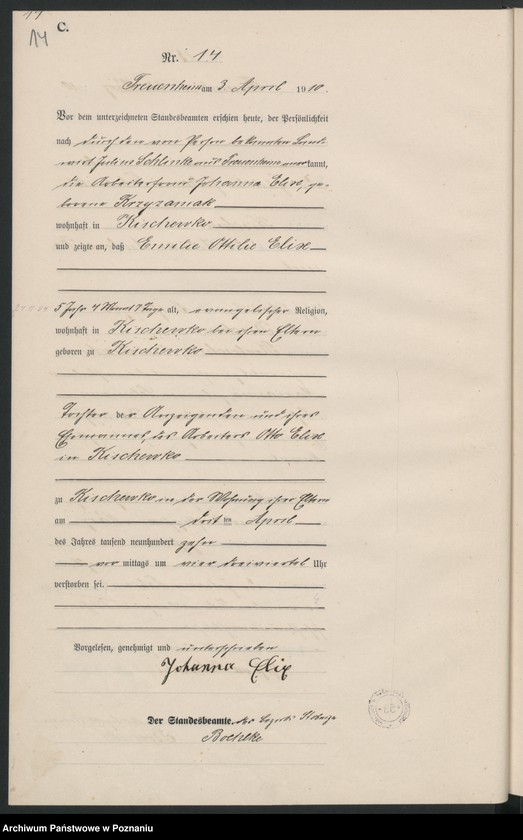 14
14
C.
Nr. 14
Treuenheim am 3. April 1910.
Vor dem unterzeichneten Standesbeamten erschien heute, der Persönlichkeit
nach durch den von Person bekannten Land-
wirt Schlenke aus Treuenheim anerkannt,
die Arbeiterfrau Johanna Elix, ge-
borene Krzyzaniak
wohnhaft in Kischewko
und zeigte an, daß Emilie Ottilie Elix
5 Jahr 4 Monat 7 Tage alt, evangelischer Religion,
wohnhaft in Kischewko bei ihren Eltern
geboren zu Kischewko
Tochter der Anzeigenden und ihres
Ehemannes, des Arbeiters Otto Elix
in Kischewko
zu Kischewko in der Wohnung ihrer Eltern
am den April
des Jahres tausend neunhundert zehn
vor mittags um vier dreiviertel Uhr
verstorben sei.
Vorgelesen, genehmigt und unterschrieben
Johanna Elix
Der Standesbeamte.
Boehlke
Archiwum Państwowe w Poznaniu